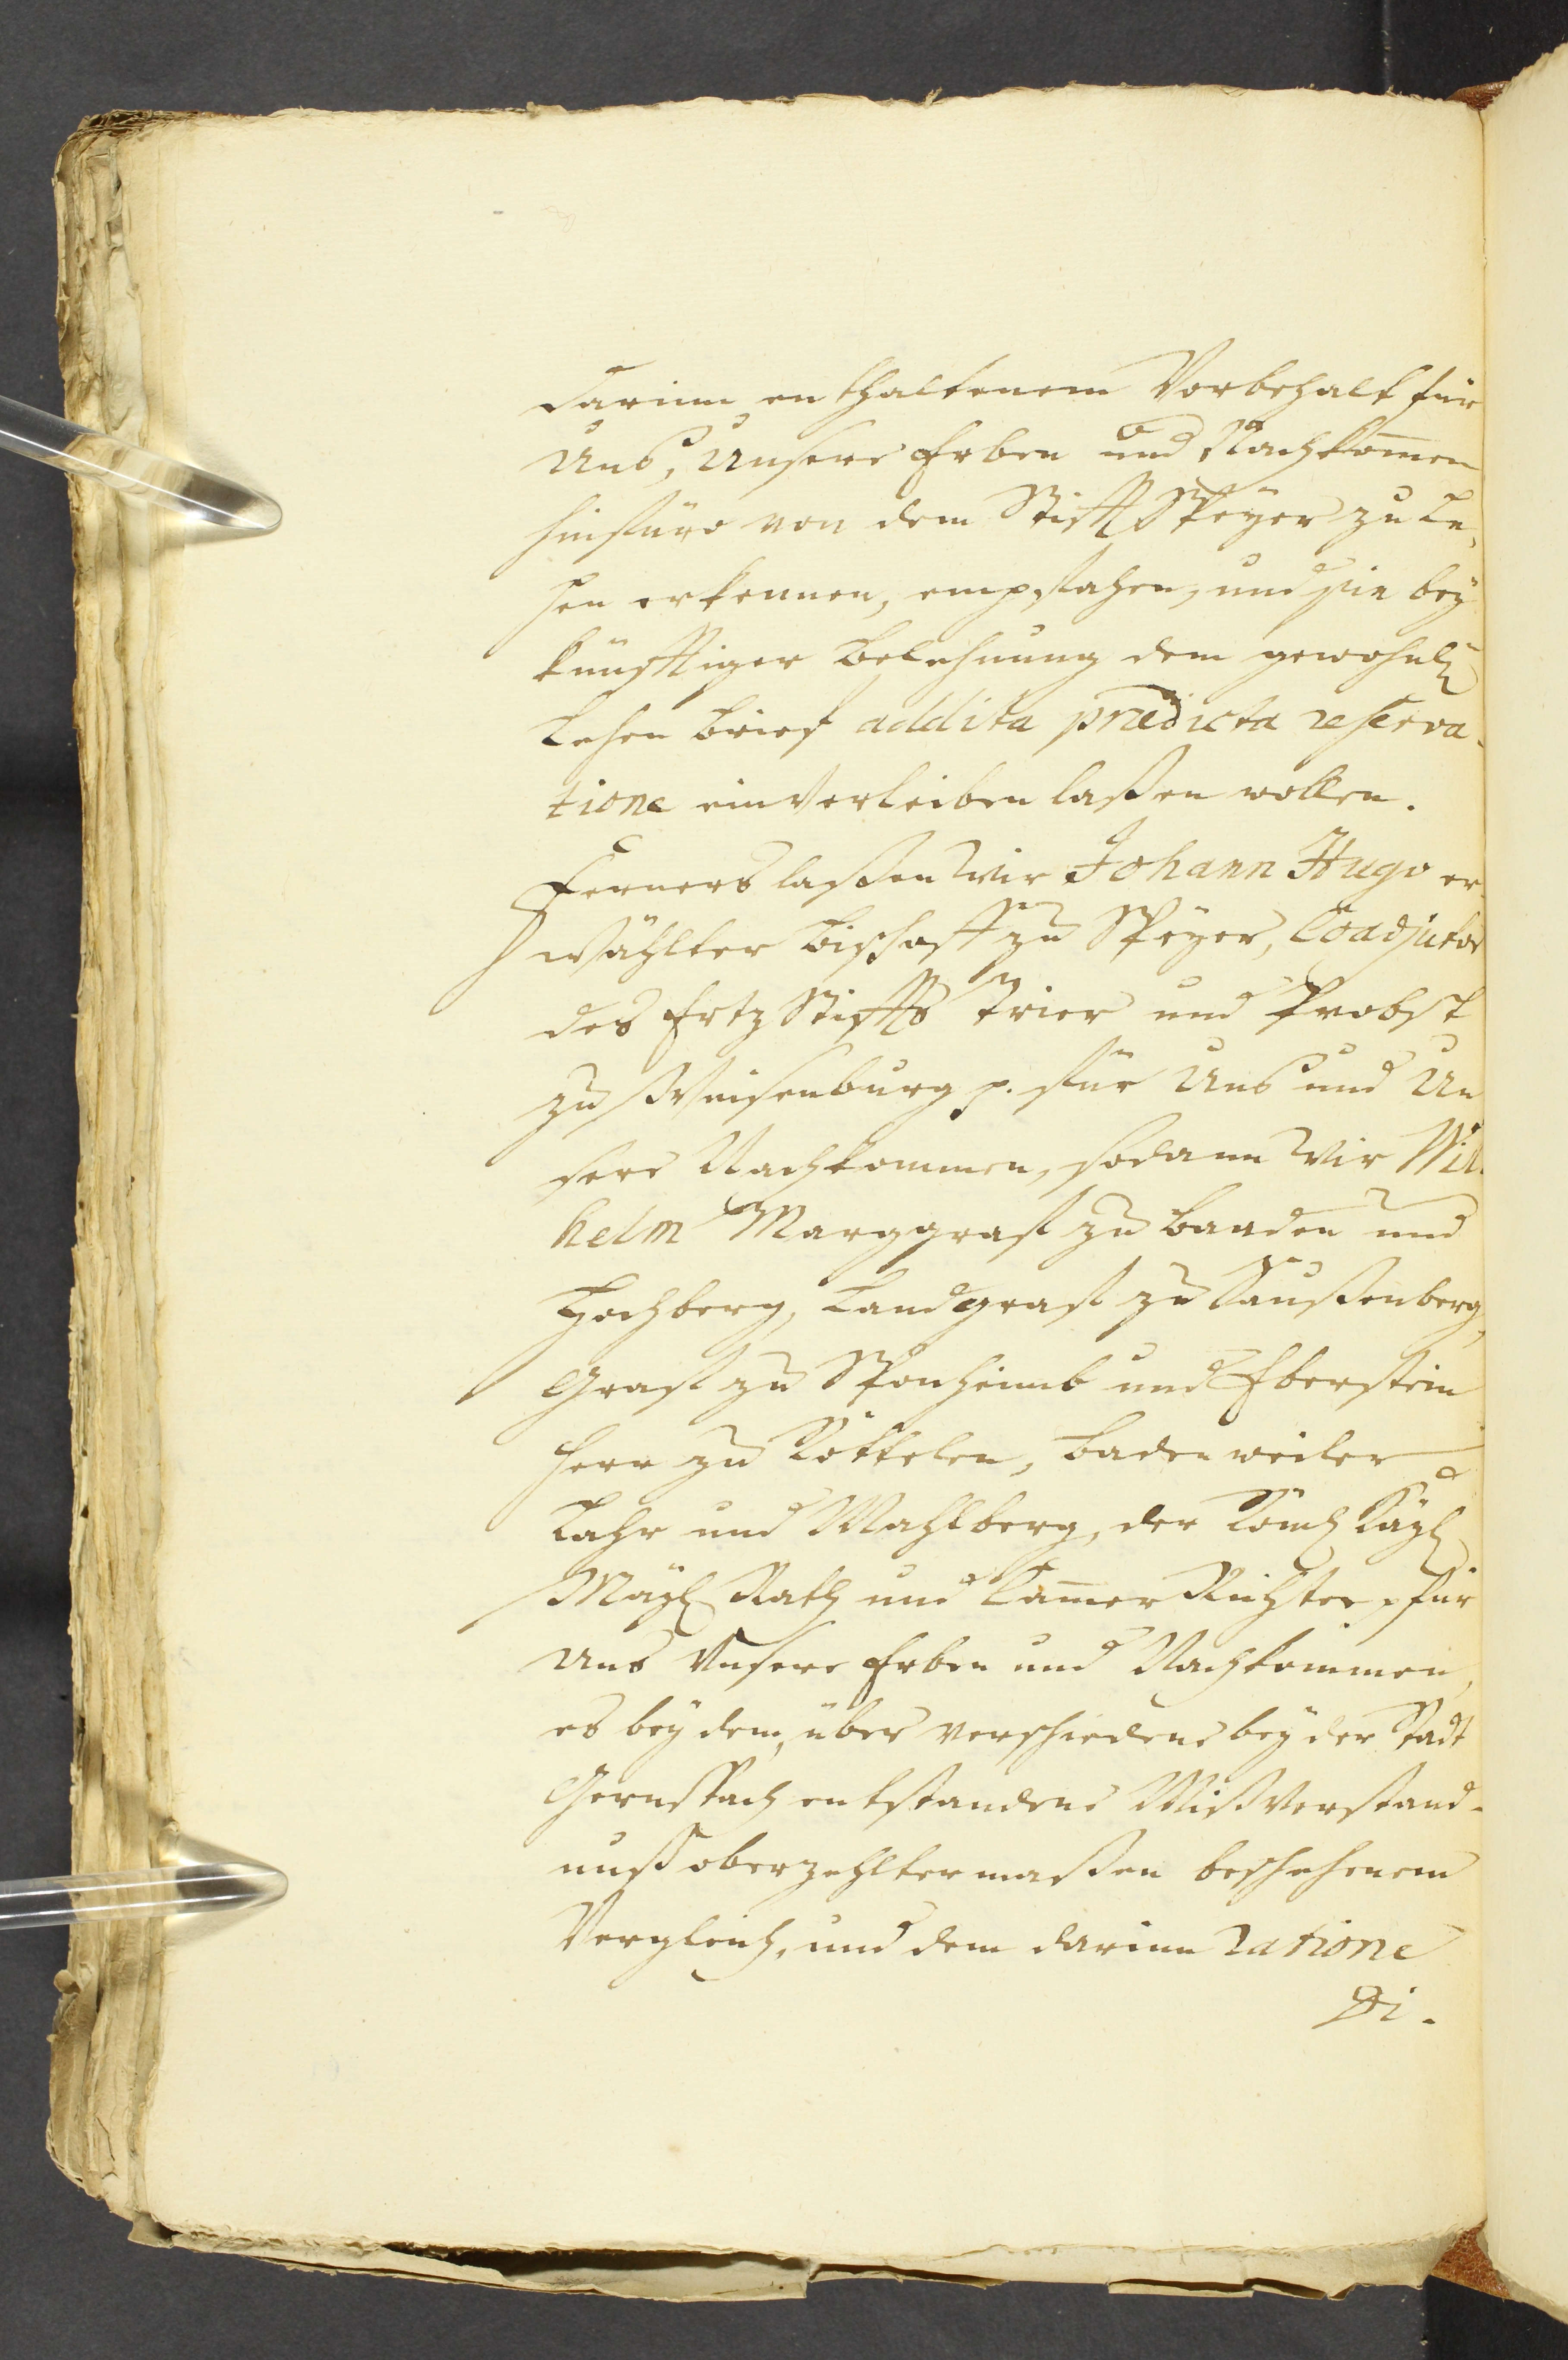 darinn enthaltenem Vorbehalt für
Uns, Unsere Erben und Nachkom̄en
hinfüro von dem Stifft Speÿer zu Le,
hen erkennen, empfahen, und sie beÿ
künfftiger Belehnung dem gewohnl.
Lehen Brief addita prædicta reserva-
tione einverleiben laßen wollen.
Ferners laßen Wir Johann Hugo er-
wählter Bischoff zu Speÿer, Coadjutor
des Ertz Stiffts Trier und Probst
zu Weisenburg p. für Uns und Un
sere Nachkommen, sodann Wir Wil-
helm Marggraf zu Baaden und
Hochberg, Landgraf zu Saußenberg,
Graf zu Sponheimb und Eberstein
Herr zu Röttelen, Badenweiler
Lahr und Mahlberg, der Röm. Kaÿl.
Maÿl. Rath und Cam̄er Richter p für
Uns Unsere Erben und Nachkommen,
es beÿ dem, über verschiedene beÿ der Stadt
Gernspach entstandene Mißverstand-
nuß oberzehltermaßen beschehenem
Vergleich, und dem darinn ratione
Di-